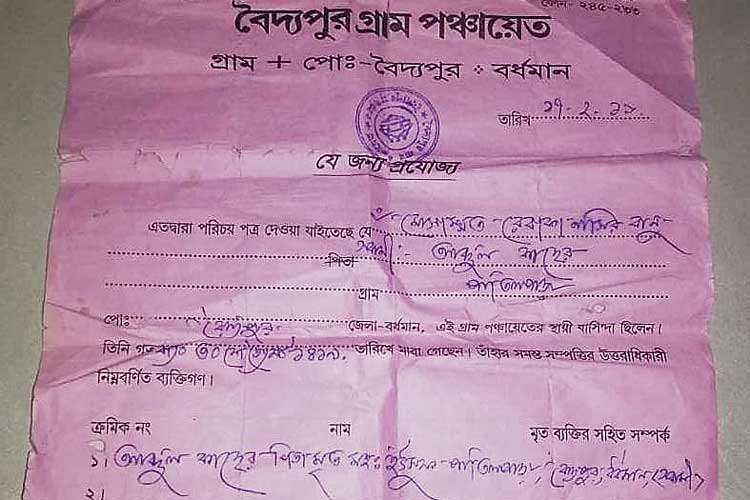 ফোন- ২৪৫-২৩৩
বৈদ্যপুর গ্রাম পঞ্চায়েত
গ্রাম + পোঃ-বৈদ্যপুর ÷ বর্ধমান
তারিখ
যে জন্য প্রযোজ্য
এতদ্বারা পরিচয় পত্র দেওয়া যাইতেছে যে
স্বামী:- আব্দুল কাহের
পিতা
গ্রাম
পোঃ বৈদ্যপুর জেলা-বর্ধমান, এই গ্রাম পঞ্চায়েতের স্থায়ী বাসিন্দা ছিলেন।
তিনি গত তারিখে মারা গেছেন। তাঁহার সমস্ত সম্পত্তির উত্তরাধিকারী
নিম্নবর্ণিত ব্যক্তিগণ।
ক্রমিক নং নাম মৃত ব্যক্তির সহিত সম্পর্ক
১। আব্দুল কাহের পিতা মৃত বৈদ্যপুর, বর্ধমান
২।